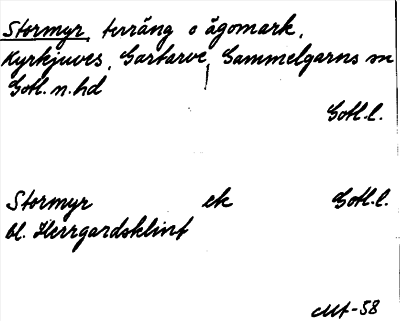 Stormyr terräng o ägomark,
Kyrkjuves, Gartarve, Gammelgarns sn
Gotl. n. hd
Gotl. l.
Stormyr ek Gotl. l.
bl. Herrgardsklint
-58